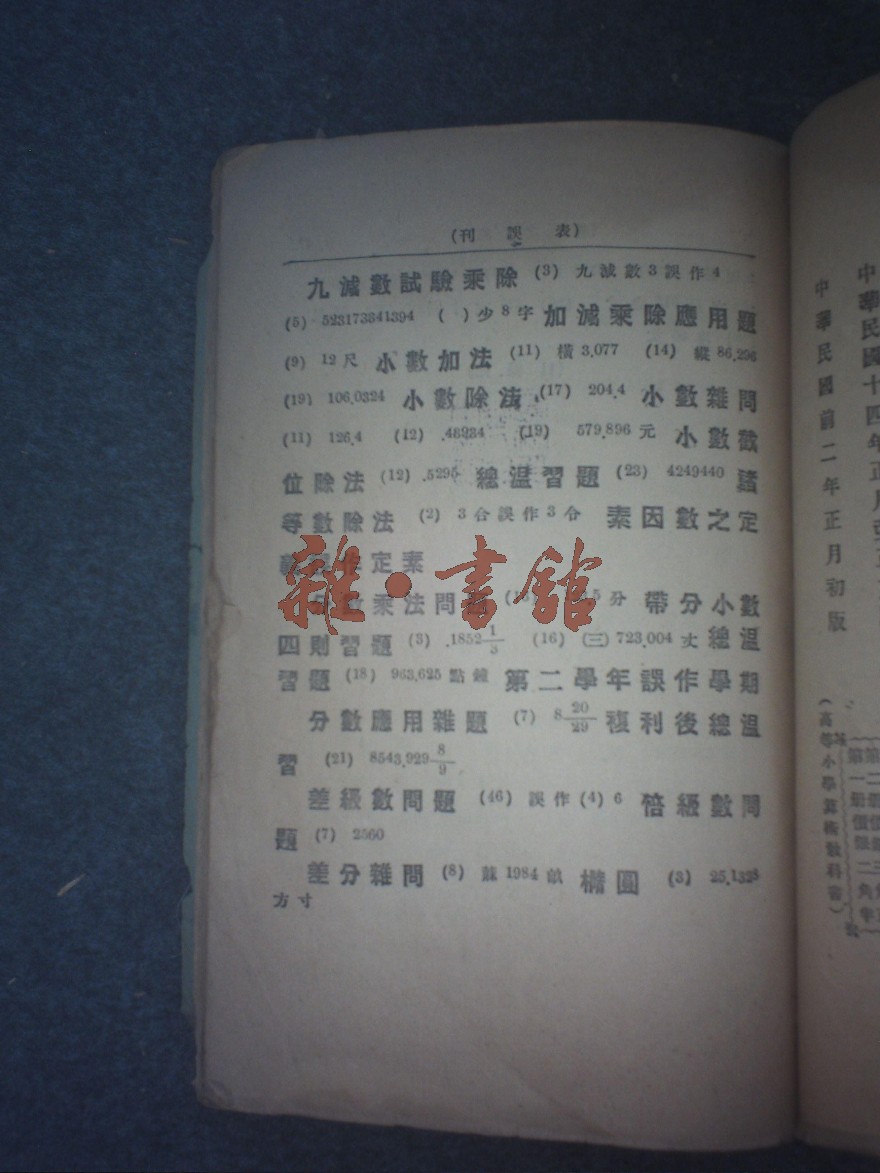 (刊誤表)
九減數試驗乘除 (3) 九減數3誤作4
(5) 523173341394 ( )少8字 加減乘除應用題
(9) 12尺 小數加法 (11) 橫3.077 (14) 縱86.296
(19) 106.0324 小數除法 (17) 204.4 小數雜問
(11) 126.4 (12) .48934 (19) 579.896元 小數截
位除法 (12) .5295 總溫習題 (23) 4249440 諸
等數除法 (2) 3合誤作3分 素因數之定
定素
數乘法問 5分 帶分小數
四則習題 (3) .1852 1/3 (16) (三) 723.004丈 總溫
習題 (18) 963.625點鐘 第二學年誤作學期
分數應用雜題 (7) 8 20/29 複利後總溫
習 (21) 8543.929 8/9
差級數問題 (46) 誤作(4) 6 倍級數問
題 (7) 2560
差分雜問 (8) 蘇1984畝 橢圓 (3) 25.1328
方寸
雜·書館
中華民國十四年正月
中華民國前二年正月初版
(高等小學算術教科書)
第一册價銀二角